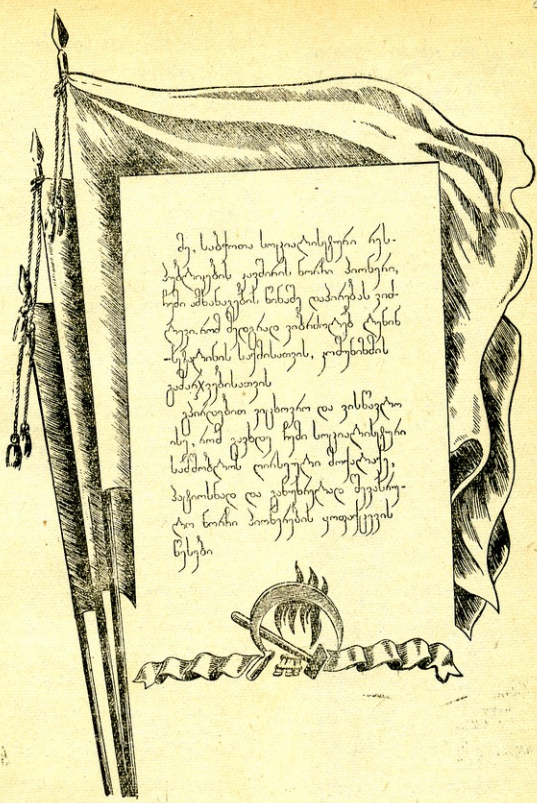 მე, საბჭოთა სოციალისტური რეს-
პუბლიკების კავშირის ნორჩი პიონერი,
ჩემი ამხანაგების წინაშე დაპირებას ვიძ-
ლევი, რომ მედგრად ვიბრძოლებ ლენინ
-სტალინის საქმისათვის, კომუნიზმის
გამარჯვებისათვის
ვპირდებით ვიცხოვრო და ვისწავლო
ისე, რომ გავხდე ჩემი სოციალისტური
სამშობლოს ღირსეული მოქალაქე,
პატიოსნად და განუხრელად შევასრუ-
ლო ნორჩი პიონერების ყოფაქცევის
წესები